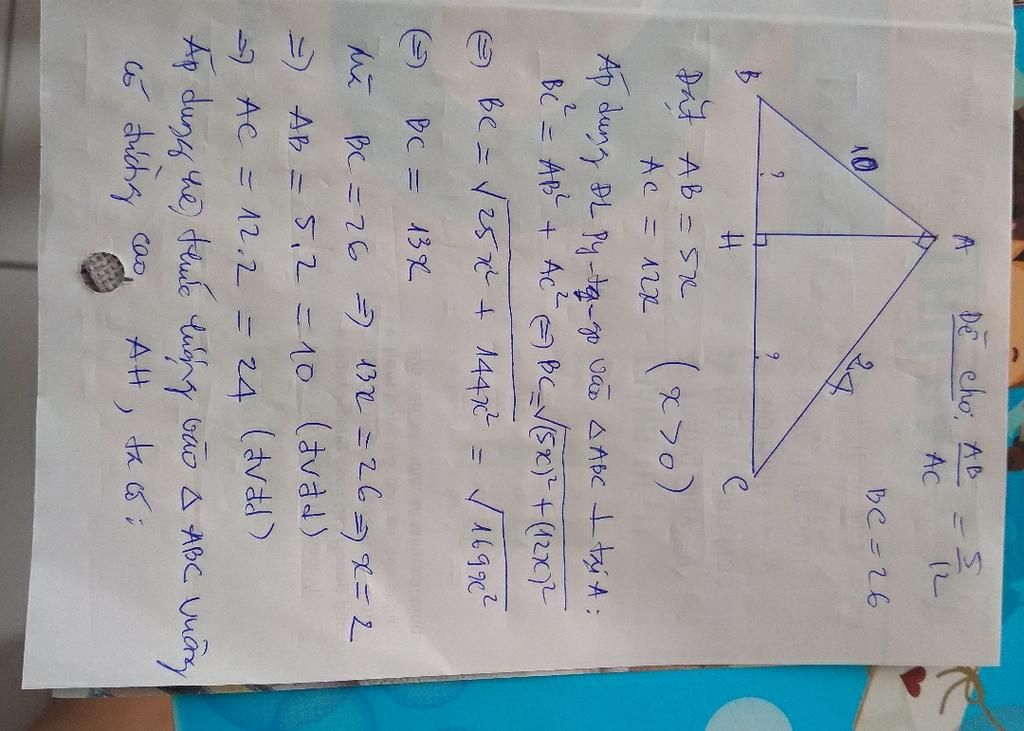 Đề cho: AB/AC = 5/12
BC = 26
A
10
24
?
?
B
H
C
Đặt AB = 5x
AC = 12x (x > 0)
Áp dụng ĐL Py-ta-go vào △ ABC ⊥ tại A:
BC² = AB² + AC² ⇔ BC = √(5x)² + (12x)²
⇔ BC = √25x² + 144x² = √169x²
⇔ BC = 13x
Mà BC = 26 ⇒ 13x = 26 ⇒ x = 2
⇒ AB = 5.2 = 10 (đvđd)
⇒ AC = 12.2 = 24 (đvđd)
Áp dụng hệ thức lượng vào △ ABC vuông
có đường cao AH, ta có: